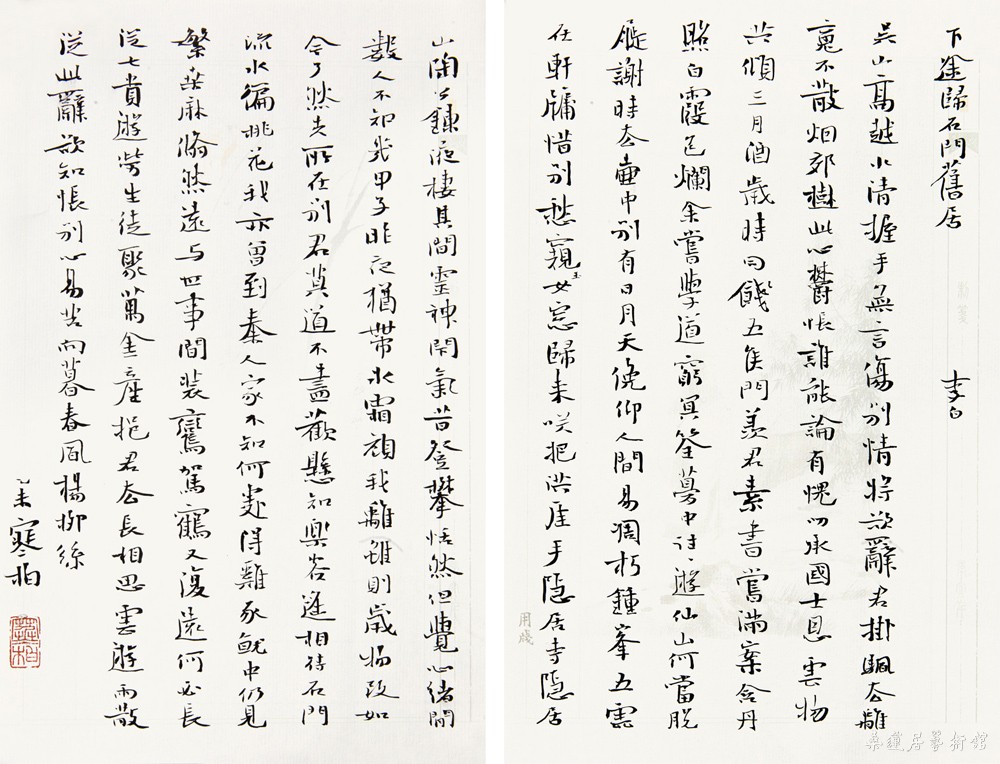 下途歸石門舊居 李白
吳山高越水清握手無言傷別情將欲辭君掛颿去離
魂不散烟郊樹此心鬱悵誰能論有愧叨承國士恩雲物
共傾三月酒歲時同餞五矦門羨君素書嘗滿案含丹
照白霞色爛余嘗學道窮冥筌夢中往往遊仙山何當脫
屣謝時去壷中別有日月天俛仰人間易凋朽鍾峯五雲
在軒牖惜別愁窺玉女窓歸来咲把洪崖手隱居寺隱居
山陶公鍊液棲其間靈神閉氣昔登攀恬然但覺心緒閒
數人不知幾甲子昨夜猶帶冰霜顏我離雖則歲物改如
今了然失所在別君莫道不盡歡懸知樂客遥相待石門
流水徧桃花我亦曾到秦人家不知何處得雞豕就中仍見
繁桒麻翛然遠与世事間裝鸞駕鶴又復遠何必長
從七貴遊勞生徒聚萬金產挹君去長相思雲遊雨散
從此辭欲知悵別心易苦向暮春風楊柳絲
乙未寒柏
寒柏
用牋
桑蓮居藝術館